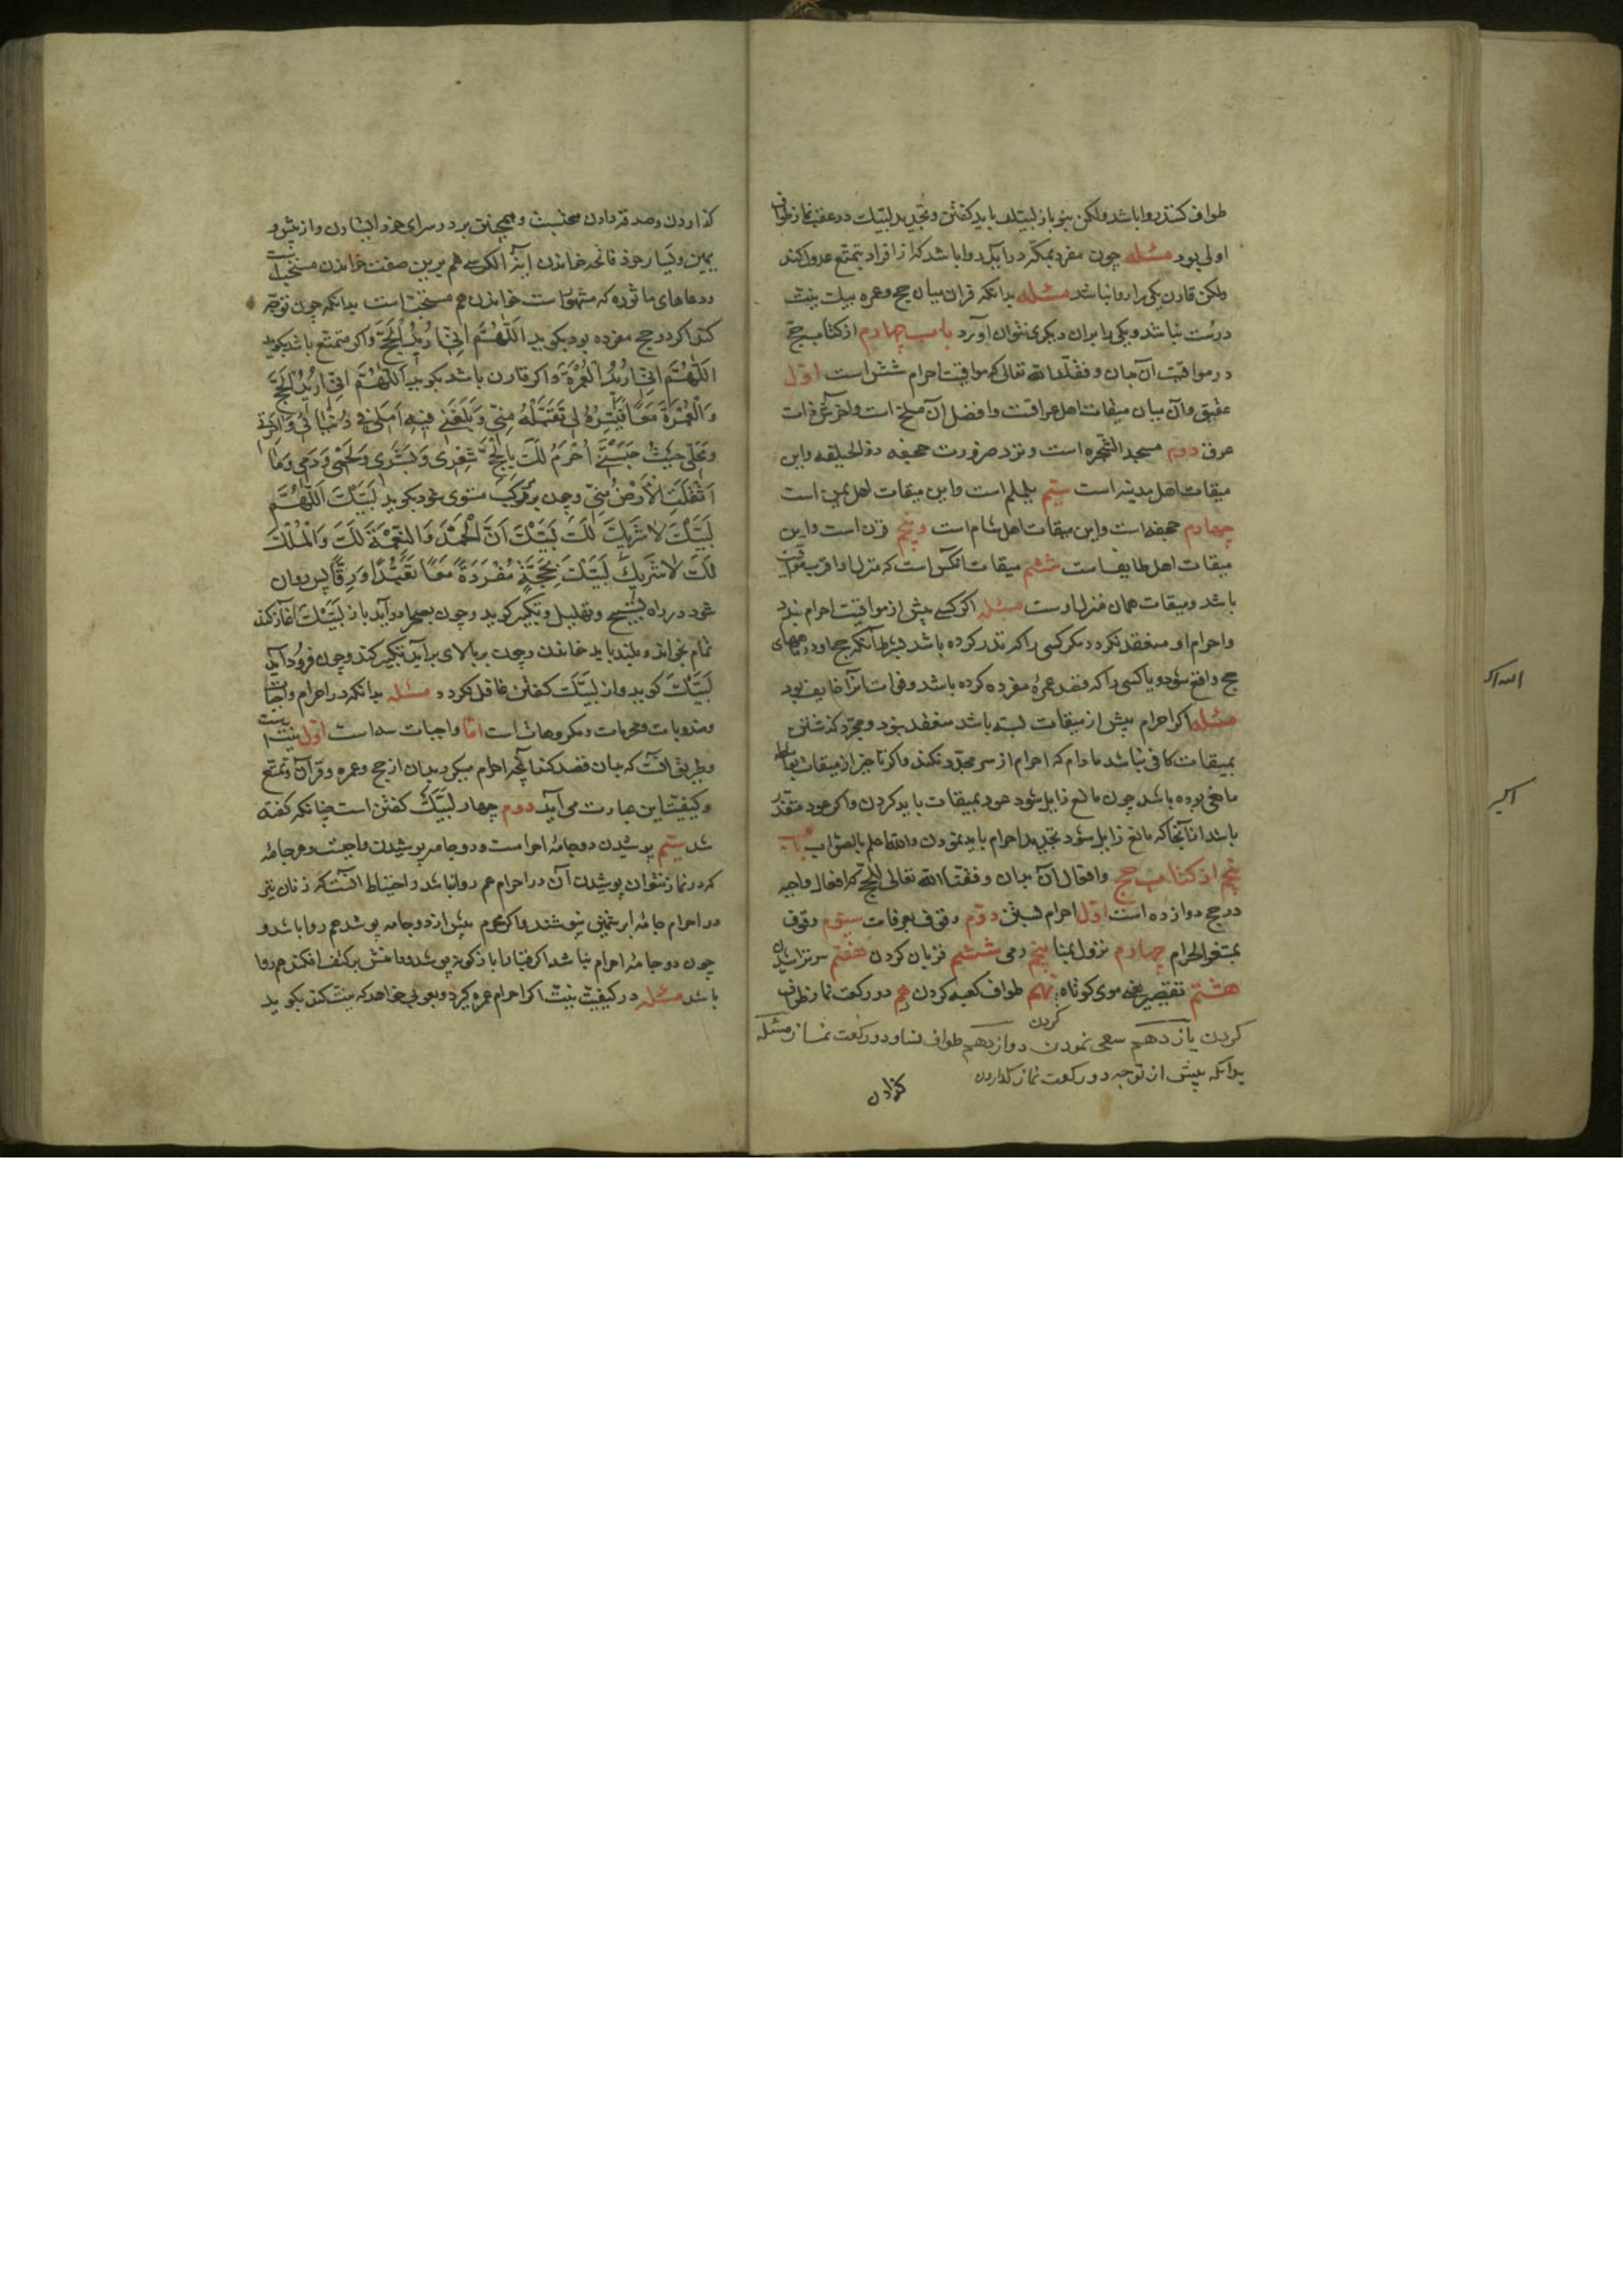 طواف کنند روا باشد ولکن بنو باز لبیک باید کفتن وتجدید لبیک در عقب نماز طواف
اولی بود مسئله چون مفرد بمکه در آید روا باشد که از افراد بتمتع عدول کند
ولکن قارن یکی را روا نباشد مسئله بدانکه قران میان حج وعمره بیک نیت
درست نباشد ویکی را بران دیکری نتوان آورد باب چهارم از کتاب حج
در مواقیت آن بدان وفقک الله تعالی که مواقیت احرام شش است اول
عقیق وآن بدان میقات اهل عراقست وافضل آن مسلخ است وآخرش ذات
عرق دوم مسجد الشجره است ونزد ضرورت جحفه ذو الحلیفه واین
میقات اهل مدینه است سیم یلملم است واین میقات اهل یمن است
چهارم جحفه است واین میقات اهل شام است وپنجم قرن است واین
میقات اهل طایف است ششم میقات آنکس است که منزل او اقرب مواقیت
باشد ومیقات همان منزل اوست مسئله اکر کسی پیش از مواقیت احرام بندد
واحرام او منعقد نکردد مکر کسی را که نذر کرده باشد بشرط آنکه حج او در ماههای
حج واقع شود ویا کسی را که قصد عمرهٔ مفرده کرده باشد وفوات آنرا خایف بود
مسئله اکر احرام پیش از میقات بسته باشد منعقد نبود ومجرد کذشتن
بمیقات کافی نباشد مادام که احرام از سر مجدد نکند واکر تاخیر از میقات بواسطه
مانعی بوده باشد چون مانع زایل شود عود بمیقات باید کردن واکر عود متعذر
باشد از آنجا که مانع زایل شود تجدید احرام باید نمودن والله اعلم بالصواب باب
پنجم از کتاب حج وافعال آن بدان وفقک الله تعالی للحج که افعال واجبه
در حج دوازده است اول احرام بستن دوم وقوف بعرفات سیوم وقوف
بمشعر الحرام چهارم نزول بمنا پنجم رمی ششم قربان کردن هفتم سر تراشیدن
هشتم تقصیر یعنی موی کوتاه کردن نهم طواف کعبه کردن دهم دو رکعت نماز طواف
کردن یازدهم سعی نمودن دوازدهم طواف نسا ودو رکعت نماز مسئله
بدانکه پیش از توجه دو رکعت نماز کذاردن
کذاردن
الله اکبر
اکبر
کذاردن وصدقه دادن سنتست وهمچنین بر در سرای خود ایستادن واز پیش و
یمین ویسار خود فاتحه خواندن آیة الکرسی هم برین صفت خواندن مستحبست
ودعاهای ماثوره که مشهورست خواندن هم مستحبست بدانکه چون توجه
کند اکر در حج مفرده بود بکوید اَللّهُمَّ اِنّی اُریدُ الْحَجَّ واکر متمتع باشد بکوید
اَللّهُمَّ اِنّی اُریدُ الْعُمْرَةَ واکر قارن باشد بکوید اَللّهُمَّ اِنّی اُریدُ الْحَجَّ
وَالْعُمْرَةَ مَعاً فَیَسِّرْهُ لی تَقَبَّلْهُ مِنّی وَبَلِّغْنی فیهِ اَمَلی فی دُنْیایَ وَآخِرَتی
وَحُلَّنی حَیْثُ حَبَسْتَنی اُحْرِمُ لَکَ بِالْحَجِّ شَعْری وَبَشَری وَلَحْمی وَدَمی وَما
اَثْقَلَتِ الْاَرْضُ مِنّی وچون بر مرکب مستوی شود بکوید لَبَّیْکَ اَللّهُمَّ
لَبَّیْکَ لا شَریکَ لَکَ لَبَّیْکَ اَنَّ الْحَمْدَ وَالنِّعْمَةَ لَکَ وَالْمُلْکَ
لَکَ لا شَریکَ لَبَّیْکَ بِحَجَّةٍ مُفْرَدَةٍ مَعاً تَعَبُّداً وَرِقّاً پس روان
شود در راه تسبیح وتهلیل وتکبیر کوید وچون بصحرا در آید باز لَبَّیْکَ آغاز کند
تمام بخواند وبلند باید خواندن وچون بر بالای بر آید تکبیر کند وچون فرود آید
لَبَّیْکَ کوید واز لَبَّیْکَ کفتن غافل نکردد مسئله بدانکه در احرام واجبات
ومندوبات ومحرمات ومکروهاتست اما واجبات سه است اول نیت
وطریق آنست که بدان قصد کند آنچه احرام میکیرد بدان از حج وعمره وقران وتمتع
وکیفیت این عبارت می آید دوم چهار لَبَّیْکَ کفتن است چنانکه کفته
شد سیم پوشیدن دو جامهٔ احرامست ودو جامه پوشیدن واجبست وهر جامهٔ
که در نماز نتوان پوشیدن آن در احرام هم روا نباشد واحتیاط آنست که زنان نیز
در احرام جامهٔ ابریشمین نپوشند واکر محرم بیش از دو جامه پوشد هم روا باشد و
چون دو جامهٔ احرام نباشد اکر قبا را باز کونه پوشد ودامنش بر کتف افکند هم روا
باشد مسئله در کیفیت نیت اکر احرام عمره کیرد وبعربی خواهد که نیت کند بکوید